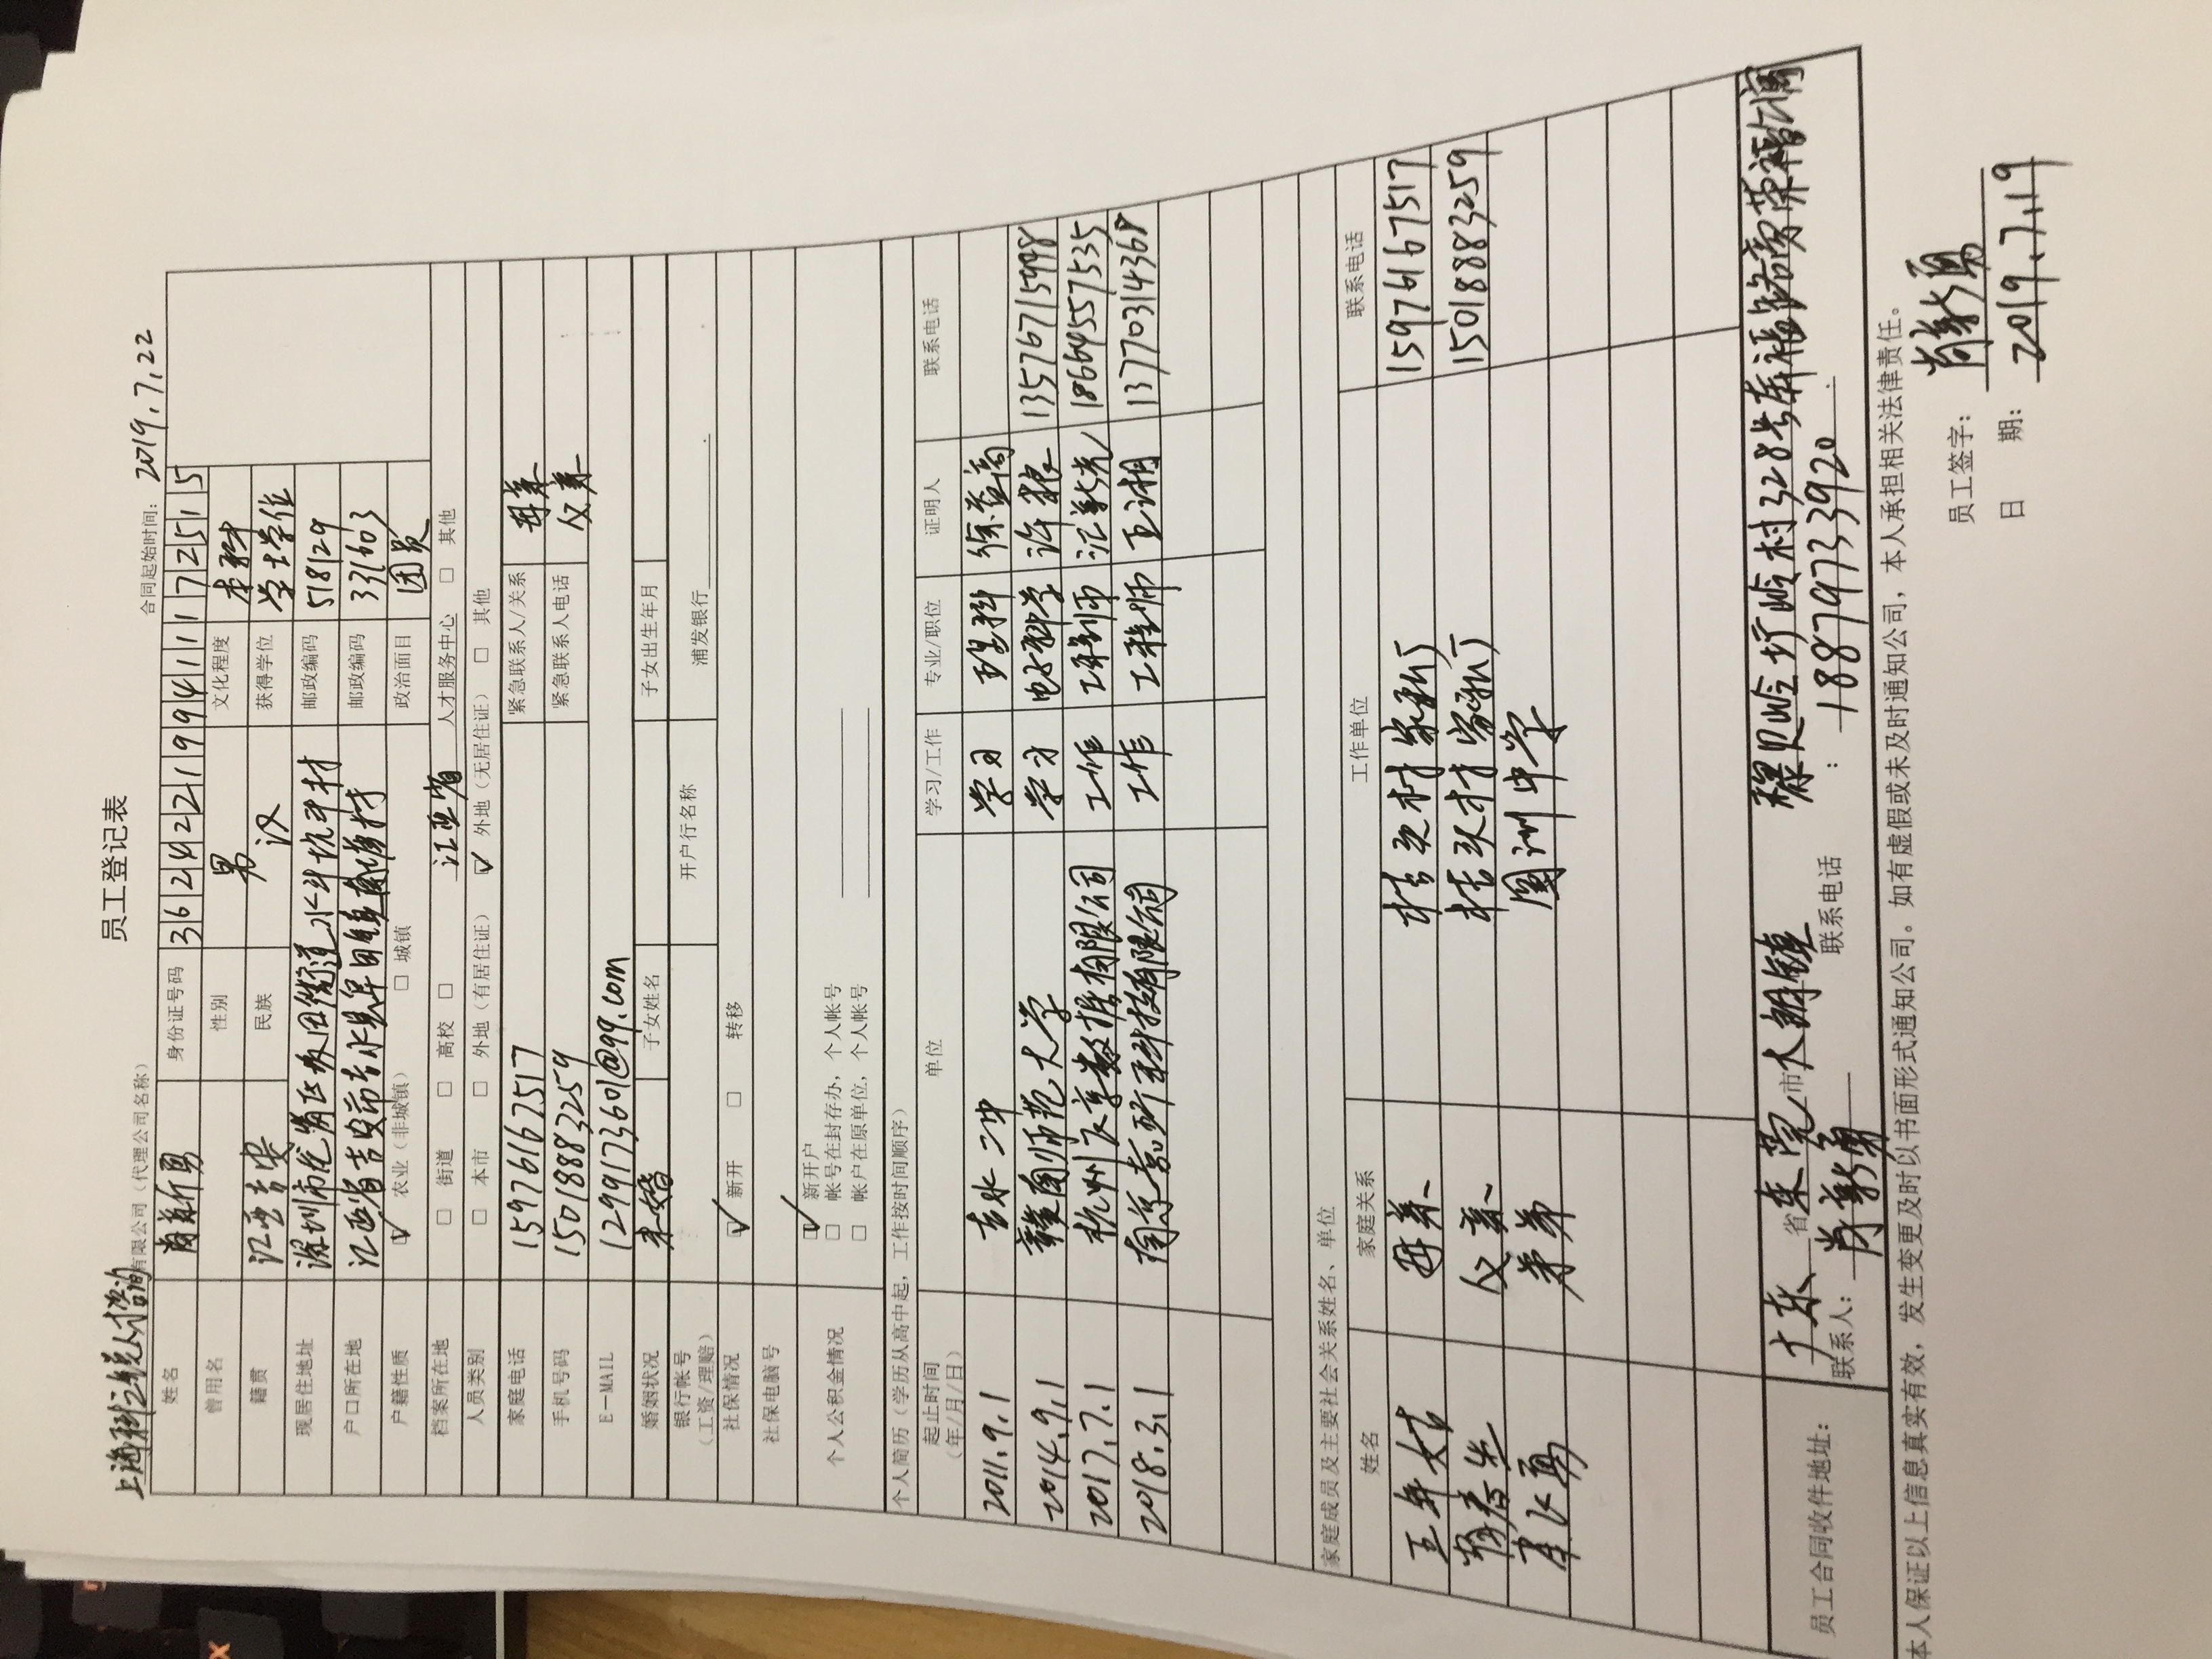 员工登记表
上海科之锐人才咨询有限公司（代理公司名称） 合同起始时间： 2019.7.22
姓名 肖新勇 身份证号码 362422199411172515
曾用名 性别 男 文化程度 本科
籍贯 江西吉安 民族 汉 获得学位 学士学位
现居住地址 深圳市龙岗区坂田街道水斗坑斗村 邮政编码 518129
户口所在地 江西省吉安市吉水县阜田镇南塘村 邮政编码 331603
户籍性质 ☑ 农业（非城镇） □ 城镇 政治面目 团员
档案所在地 □ 街道 □ 高校 □ 江西省 人才服务中心 □ 其他
人员类别 □ 本市 □ 外地（有居住证） ☑ 外地（无居住证） □ 其他
家庭电话 15976167517 紧急联系人/关系 母亲
手机号码 15018883259 紧急联系人电话 父亲
E-MAIL 1299173601@qq.com
婚姻状况 未婚 子女姓名 子女出生年月
银行帐号（工资/理赔） 开户行名称 浦发银行
社保情况 ☑ 新开 □ 转移
社保电脑号
个人公积金情况 ☑ 新开户
□ 帐号在封存办，个人帐号
□ 帐户在原单位，个人帐号
个人简历（学历从高中起，工作按时间顺序）
起止时间（年/月/日） 单位 学习/工作 专业/职位 证明人 联系电话
2011.9.1 吉水二中 学习 理科 徐益高
2014.9.1 赣南师范大学 学习 电子科学 许粮 13576715998
2017.7.1 杭州 数据有限公司 工作 工程师 汪新光 18664557535
2018.3.1 南京嘉环科技有限公司 工作 工程师 王湘 13770314368
家庭成员及主要社会关系姓名、单位
姓名 家庭关系 工作单位 联系电话
王年姑 母亲 桔头村家私厂 15976167517
肖春生 父亲 桔头村家私厂 15018883259
勇 弟弟 园洲中学
员工合同收件地址： 广东省东莞市大朗镇 穆贝岭圩岭村328号 福路旁荣福公寓
联系人： 肖新勇 联系电话： 18879733920
本人保证以上信息真实有效，发生变更及时以书面形式通知公司。如有虚假或未及时通知公司，本人承担相关法律责任。
员工签字： 肖新勇
日 期： 2019.7.19